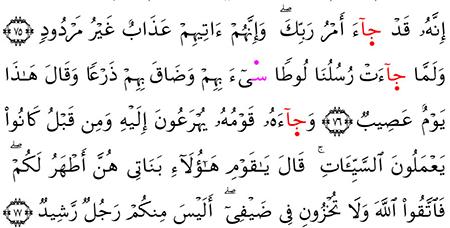 إِنَّهُۥ قَدْ جَآءَ أَمْرُ رَبِّكَۖ وَإِنَّهُمْ ءَاتِيهِمْ عَذَابٌ غَيْرُ مَرْدُودٖ ٧٥
وَلَمَّا جَآءَتْ رُسُلُنَا لُوطٗا سِيٓءَ بِهِمْ وَضَاقَ بِهِمْ ذَرْعٗا وَقَالَ هَٰذَا
يَوْمٌ عَصِيبٞ ٧٦ وَجَآءَهُۥ قَوْمُهُۥ يُهْرَعُونَ إِلَيْهِ وَمِن قَبْلُ كَانُوا۟
يَعْمَلُونَ ٱلسَّيِّـَٔاتِۚ قَالَ يَٰقَوْمِ هَٰٓؤُلَآءِ بَنَاتِى هُنَّ أَطْهَرُ لَكُمْۖ
فَٱتَّقُوا۟ ٱللَّهَ وَلَا تُخْزُونِ فِى ضَيْفِىٓۖ أَلَيْسَ مِنكُمْ رَجُلٞ رَّشِيدٞ ٧٧